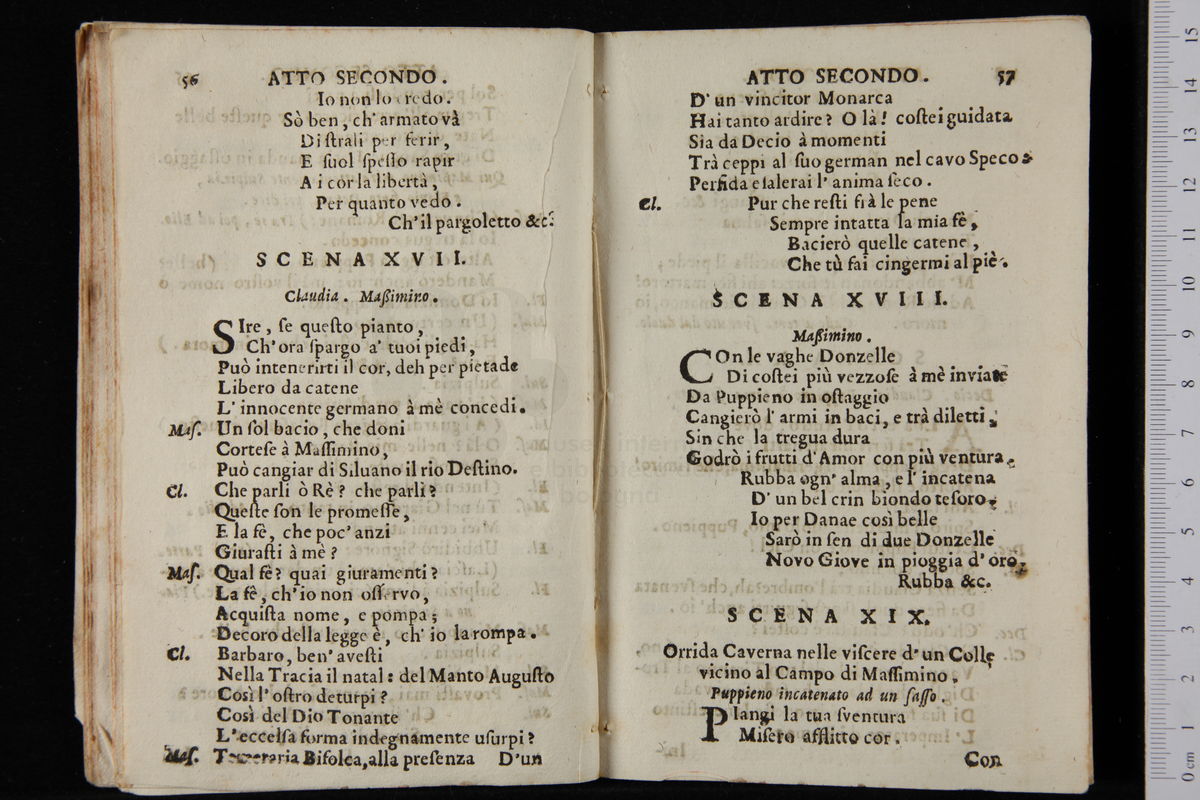 56 ATTO SECONDO.
Io non lo credo.
Sò ben, ch' armato và
Di ſtrali per ferir,
E ſuol ſpeſſo rapir
A i cor la libertà,
Per quanto vedo.
Ch' il pargoletto &c.
SCENA XVII.
Claudia. Maßimino.
SIre, ſe queſto pianto,
Ch' ora ſpargo a' tuoi piedi,
Può intenerirti il cor, deh per pietade
Libero da catene
L' innocente germano à mè concedi.
Maſ. Un ſol bacio, che doni
Corteſe à Maſſimino,
Può cangiar di Siluano il rio Deſtino.
Cl. Che parli ò Rè? che parli?
Queſte ſon le promeſſe,
E la fè, che poc' anzi
Giuraſti à mè?
Maſ. Qual fè? quai giuramenti?
La fè, ch' io non oſſervo,
Acquiſta nome, e pompa;
Decoro della legge è, ch' io la rompa.
Cl. Barbaro, ben' aveſti
Nella Tracia il natal: del Manto Auguſto
Così l' oſtro deturpi?
Così del Dio Tonante
L' eccelſa forma indegnamente uſurpi?
Maſ. Temeraria Bifolca, alla preſenza D'un
ATTO SECONDO. 57
D' un vincitor Monarca
Hai tanto ardire? O là! coſtei guidata
Sia da Decio à momenti
Trà ceppi al ſuo german nel cavo Speco
Perfida eſalerai l' anima ſeco.
Cl. Pur che reſti frà le pene
Sempre intatta la mia fè,
Bacierò quelle catene,
Che tù fai cingermi al piè.
SCENA XVIII.
Maßimino.
COn le vaghe Donzelle
Di coſtei più vezzoſe à mè inviate
Da Puppieno in oſtaggio
Cangierò l' armi in baci, e trà diletti,
Sin che la tregua dura
Godrò i frutti d' Amor con più ventura.
Rubba ogn' alma, e l' incatena
D' un bel crin biondo teſoro,
Io per Danae così belle
Sarò in ſen di due Donzelle
Novo Giove in pioggia d' oro,
Rubba &c.
SCENA XIX.
Orrida Caverna nelle viſcere d' un Colle
vicino al Campo di Maſſimino.
Puppieno incatenato ad un ſaſſo.
PIangi la tua ſventura
Miſero afflitto cor.
Con